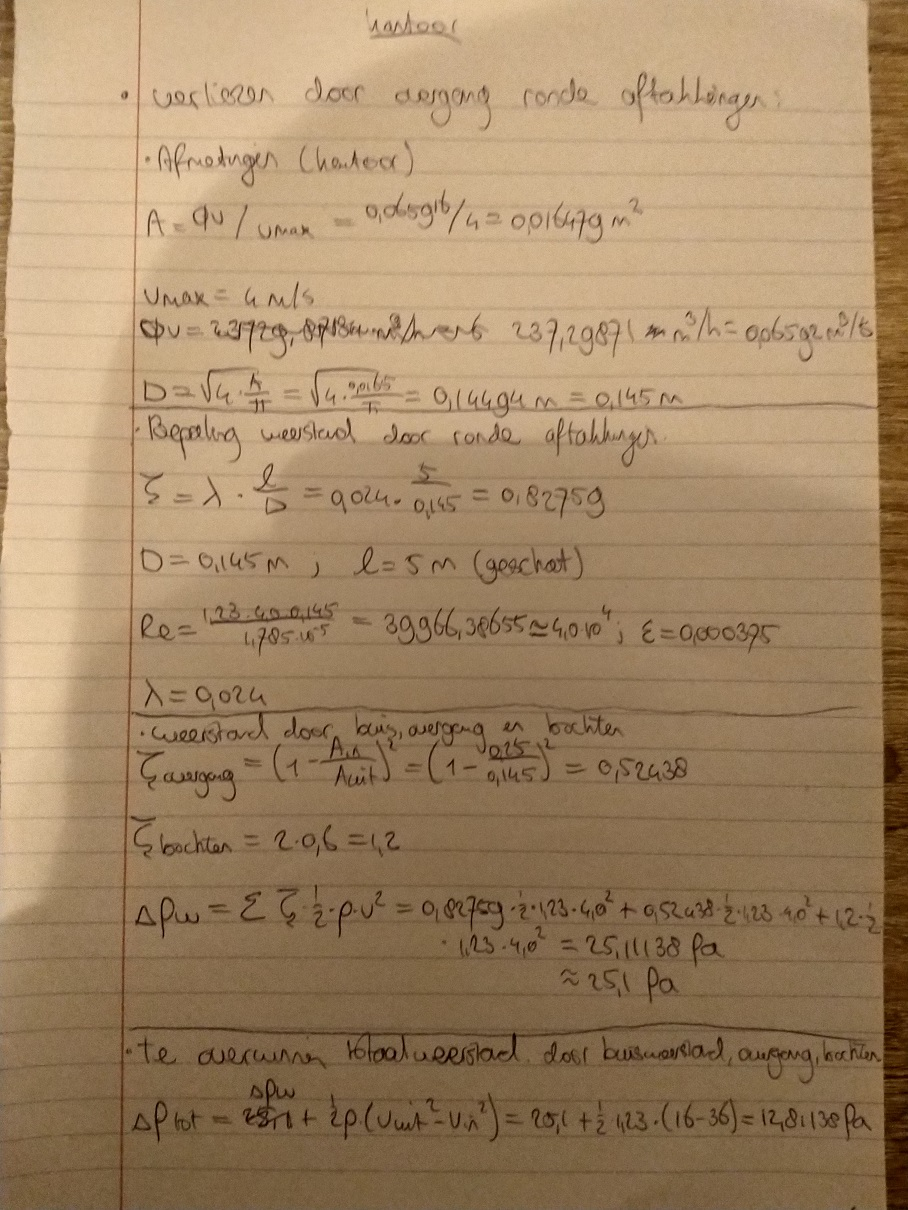 kantoor
• verliezen door overgang ronde aftakkingen:
· Afmetingen (kantoor)
A = qv / vmax = 0,065916/4 = 0,016479 m²
vmax = 4 m/s
Φv = 237,29871 m³/h = 0,06592 m³/s
D = √4 · A/π = √4 · 0,0165/π = 0,14494 m = 0,145 m
· Bepaling weerstand door ronde aftakkingen.
ζ = λ · l/D = 0,024 · 5/0,145 = 0,82759
D = 0,145 m ; l = 5 m (geschat)
Re = 1,23 · 4,0 · 0,145 / 1,785 · 10⁻⁵ = 39966,38655 ≃ 4,0 · 10⁴ ; ε = 0,000375
λ = 0,024
· weerstand door buis, overgang en bochten
ζ overgang = (1 - A in / A uit)² = (1 - 0,25/0,145)² = 0,52438
ζ bochten = 2 · 0,6 = 1,2
Δpw = Σ ζ · ½ · ρ · v² = 0,82759 · ½ · 1,23 · 4,0² + 0,52438 · ½ · 1,23 · 4,0² + 1,2 · ½
· 1,23 · 4,0² = 25,11138 Pa
≈ 25,1 Pa
• te overwinnen totaalweerstand door buisweerstand, overgang, bochten
Δptot = Δpw + ½ρ · (Vuit² - Vin²) = 25,1 + ½ 1,23 · (16-36) = 12,81138 Pa